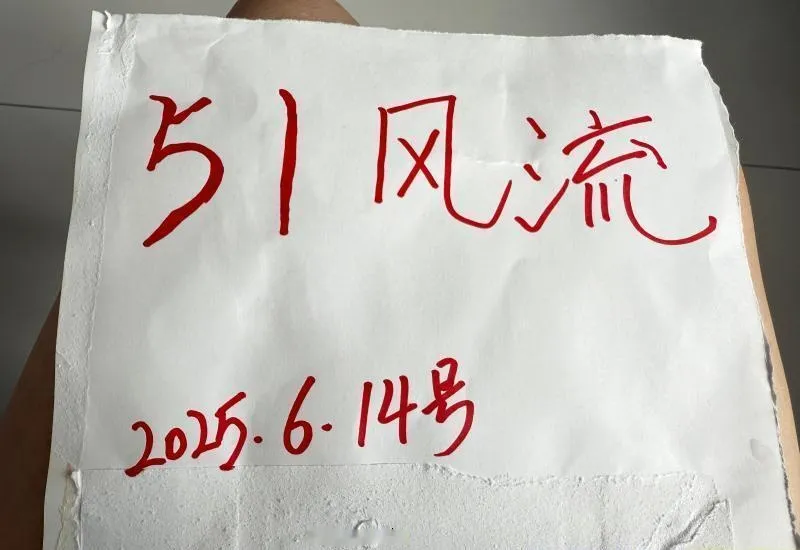 51风流
2025.6.14号